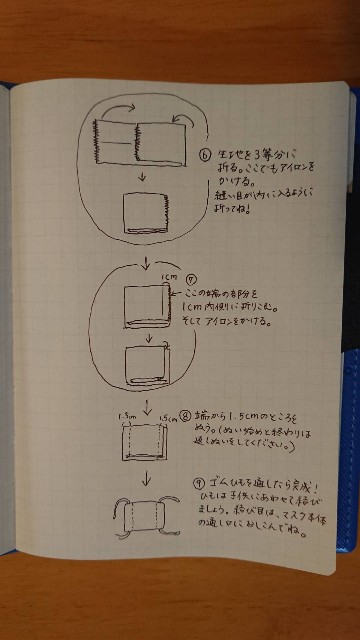 ⑥ 生地を3等分に
折る。ここでもアイロンを
かける。
縫い目が内に入るように
折ってね!
1cm
⑦
ここの端の部分を
1cm内側に折りこむ。
そしてアイロンをかける。
1.5cm
1.5cm
⑧ 端から1.5cmのところを
ぬう。(ぬい始めと終わりは
返しぬいをしてください。)
⑨ ゴムひもを通したら完成!
ひもは子供にあわせて結び
ましょう。結び目は、マスク本体
の通し口におしこんでね。